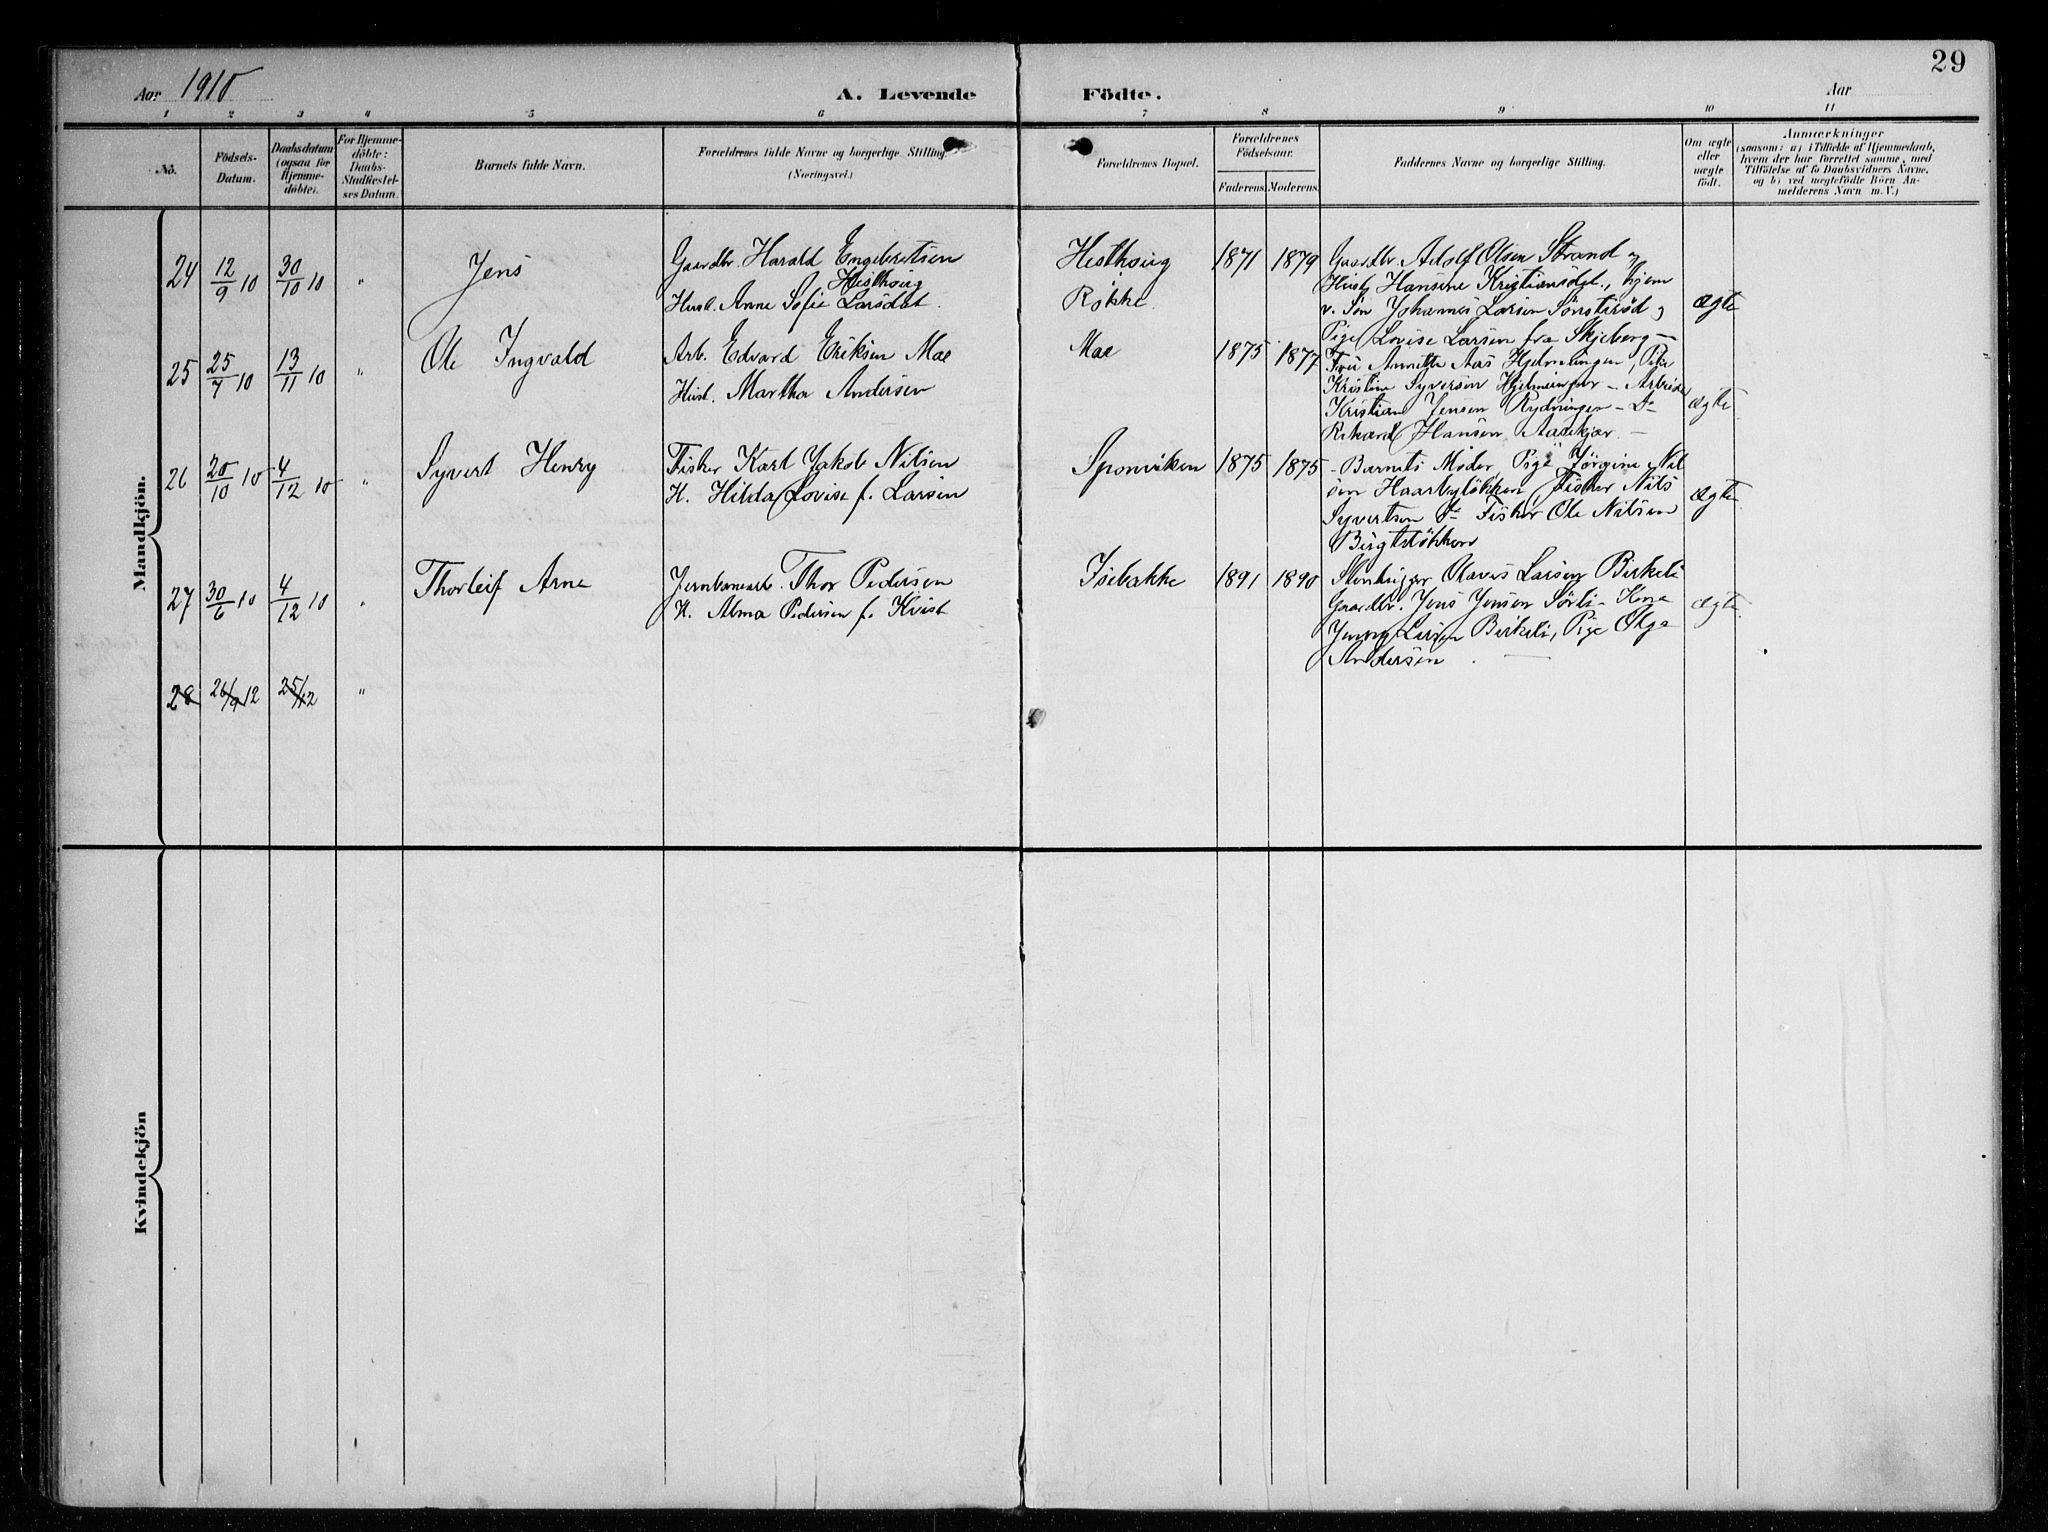 29
Aar 1910 A. Levende Födte. Aar
1 2 3 4 5 6 7 8 9 10 11
No. Födsels-Datum. Daabsdatum (ogsaa for Hjemmedöbte). For Hjemmedöbte: Daabs-Stadfæstelses Datum. Barnets fulde Navn. Forældrenes fulde Navne og borgerlige Stilling. (Næringsvei.) Forældrenes Bopæl. Forældrenes Födselsaar. Faderens. Moderens. Faddernes Navne og borgerlige Stilling. Om ægte eller uægte födt. Anmærkninger (saasom: a) i Tilfælde af Hjemmedaab, hvem der har forrettet samme, med Tilföielse af to Daabsvidners Navne. og b) ved uægtefödte Börn Anmelderens Navn m. V.)
Mandkjön.
24 12/9 10 30/10 10 " Jens
Gaardbr. Harald Engebretsen
Hestkoug
Hust. Anne Sofie Larsdat.
Hestkoug
Røkke
1871 1879
Gaardbr. Adolf Olsen Strand og
Hust Hansine Kristiansdat., hjem
v. Søn Johannes Larsen Sønsterød og
Pige Lovise Larsen fra Skjeberg —
ægte
25 25/7 10 13/11 10 " Ole Ingvald
Arb. Edvard Eriksen Mae
Hust. Martha Andersen
Mae
1875 1877
Fru Annette Aas Hjelmungen, Pige
Kristine Syversen — Arbeider
Kristian Jensen Rydningen — Do
Rikard Hansen Aasekjær —
ægte
26 20/10 10 4/12 10 " Syvert Henry
Fisker Karl Jakob Nilsen
H. Hilda Lovise f. Larsen
Sponviken
1875 1875
- Barnets Moder, Pige Jørgine Nil
sen Haarbyløkken, Fisker Nils
Syvertsen Do Fisker Ole Nilsen
ægte
27 30/6 10 4/12 10 " Thorleif Arne
Jernbanearb. Thor Pedersen
H. Alma Pedersen f. Kvist
Isebakke
1891 1890
Stenhugger Olaves Larsen Birkeli
Gaardbr. Jens Jensen Sørli - Kone
Jenny Larsen Birkeli, Pige Olga
Andersen . —
ægte
28 26/9 12 25/12 "
Kvindekjön